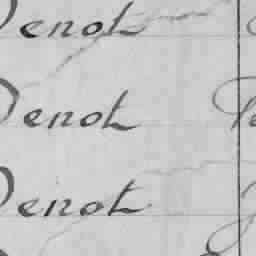 Denot
Denot
Denot